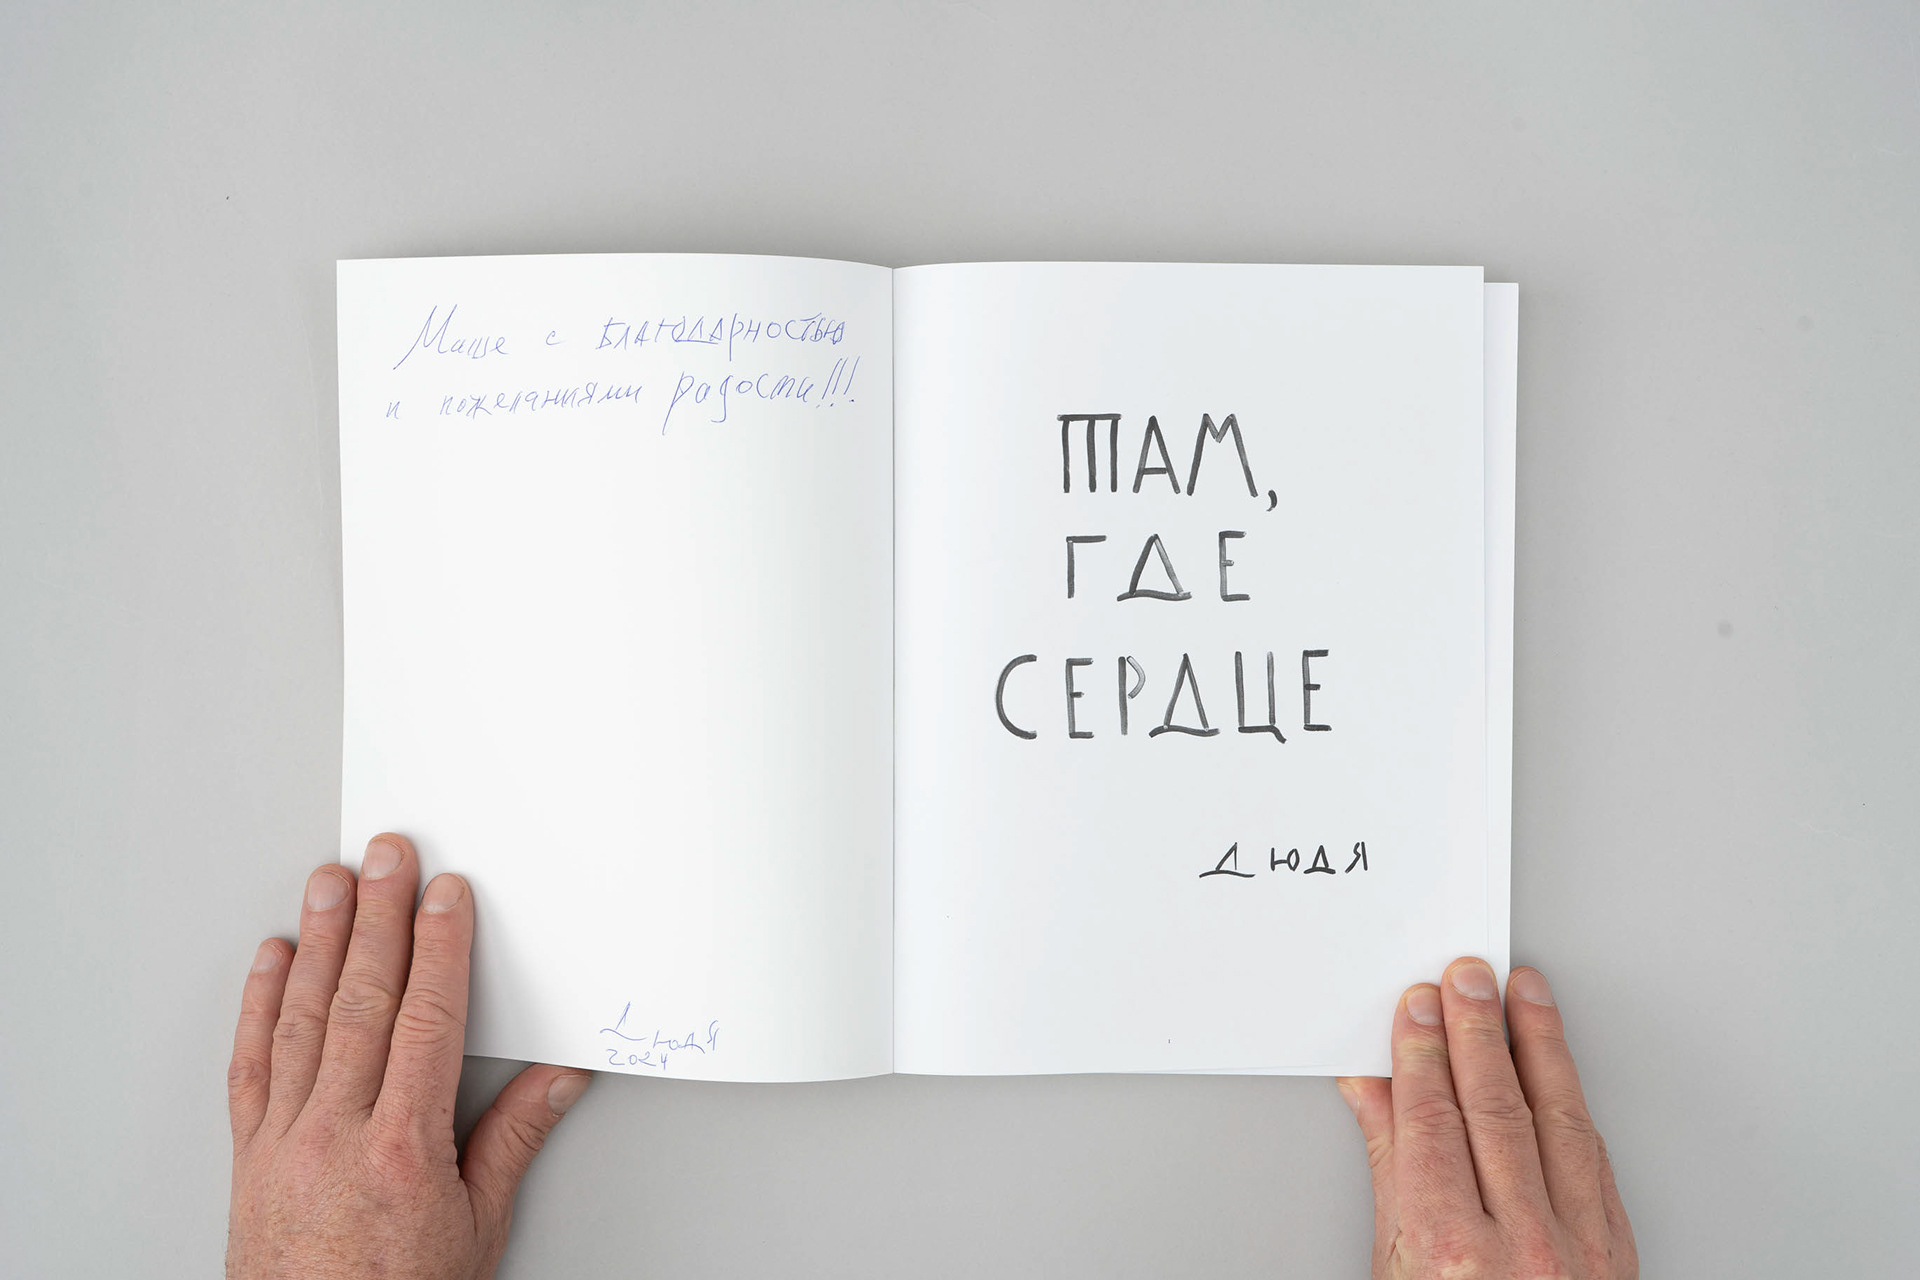 Маше с БЛАГОДАРНОСТЬЮ
и пожеланиями радости!!!
Дюдя
2024
ТАМ,
ГДЕ
СЕРДЦЕ
ДЮДЯ